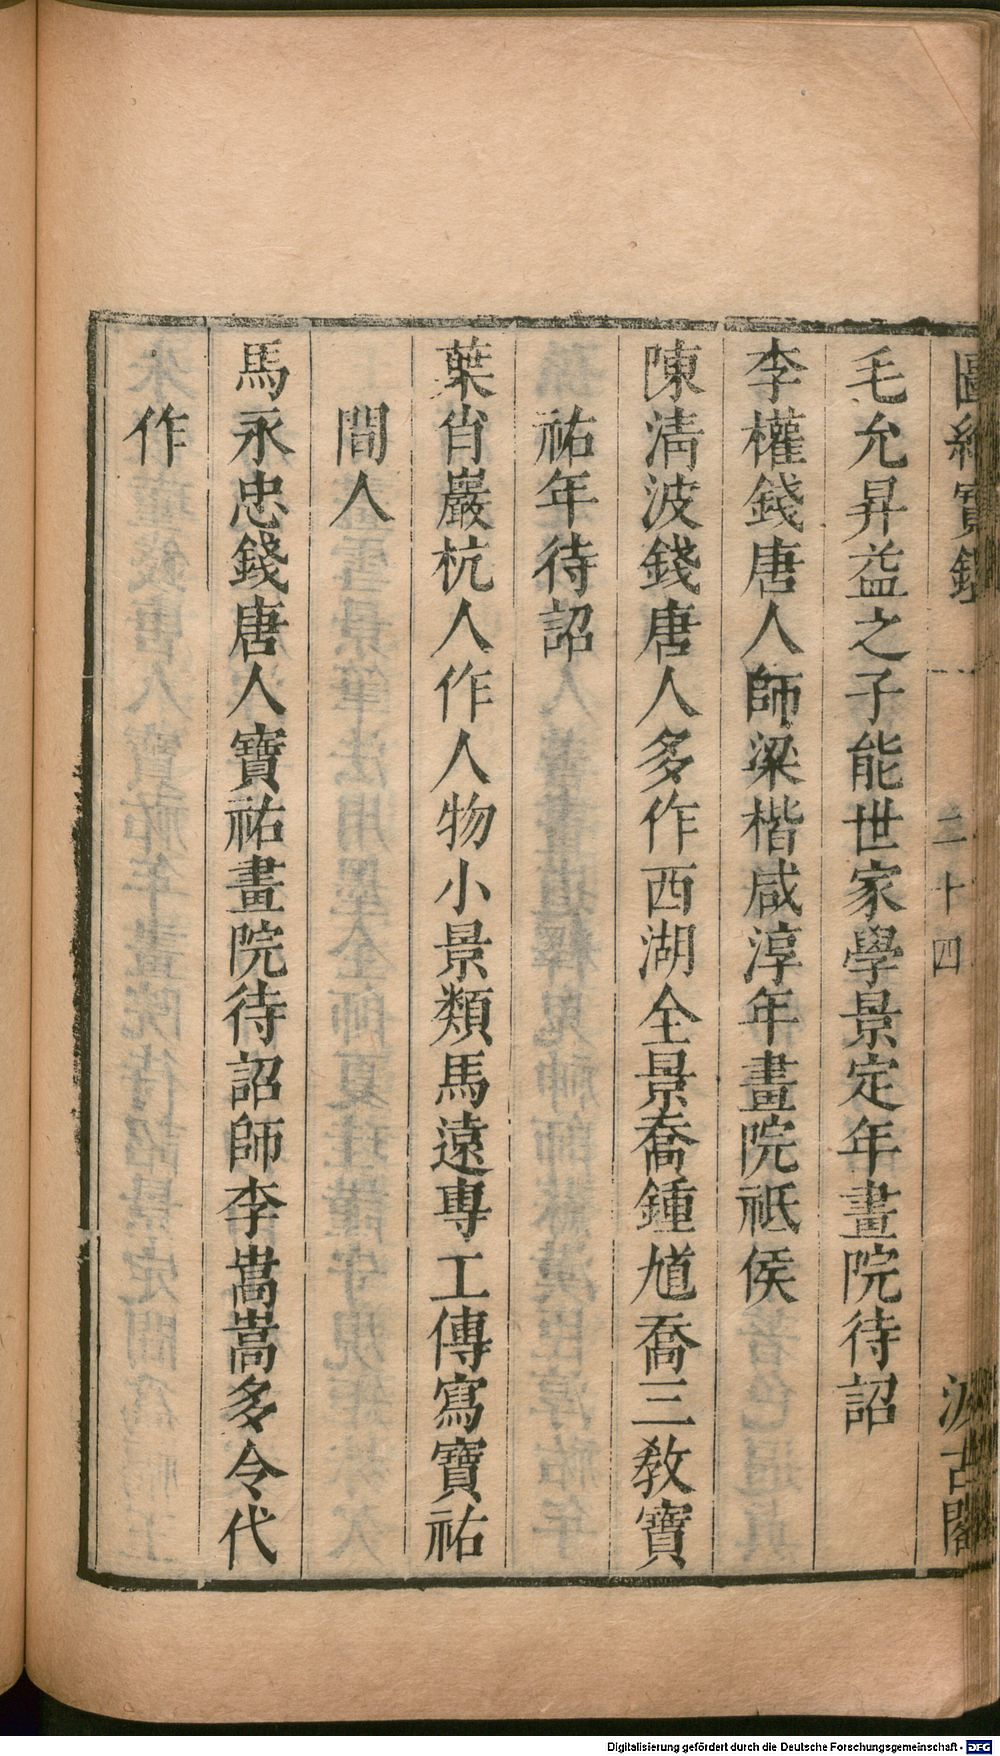 圖繪寶鑑 二十四 汲古閣
毛允昇益之子能世家學景定年畫院待詔
李權錢唐人師梁楷咸淳年畫院祗侯
陳清波錢唐人多作西湖全景喬鍾馗喬三教寶
祐年待詔
葉肖巖杭人作人物小景類馬遠專工傳寫寶祐
間人
馬永忠錢唐人寶祐畫院待詔師李嵩嵩多令代
作
Digitalisierung gefördert durch die Deutsche Forschungsgemeinschaft - DFG